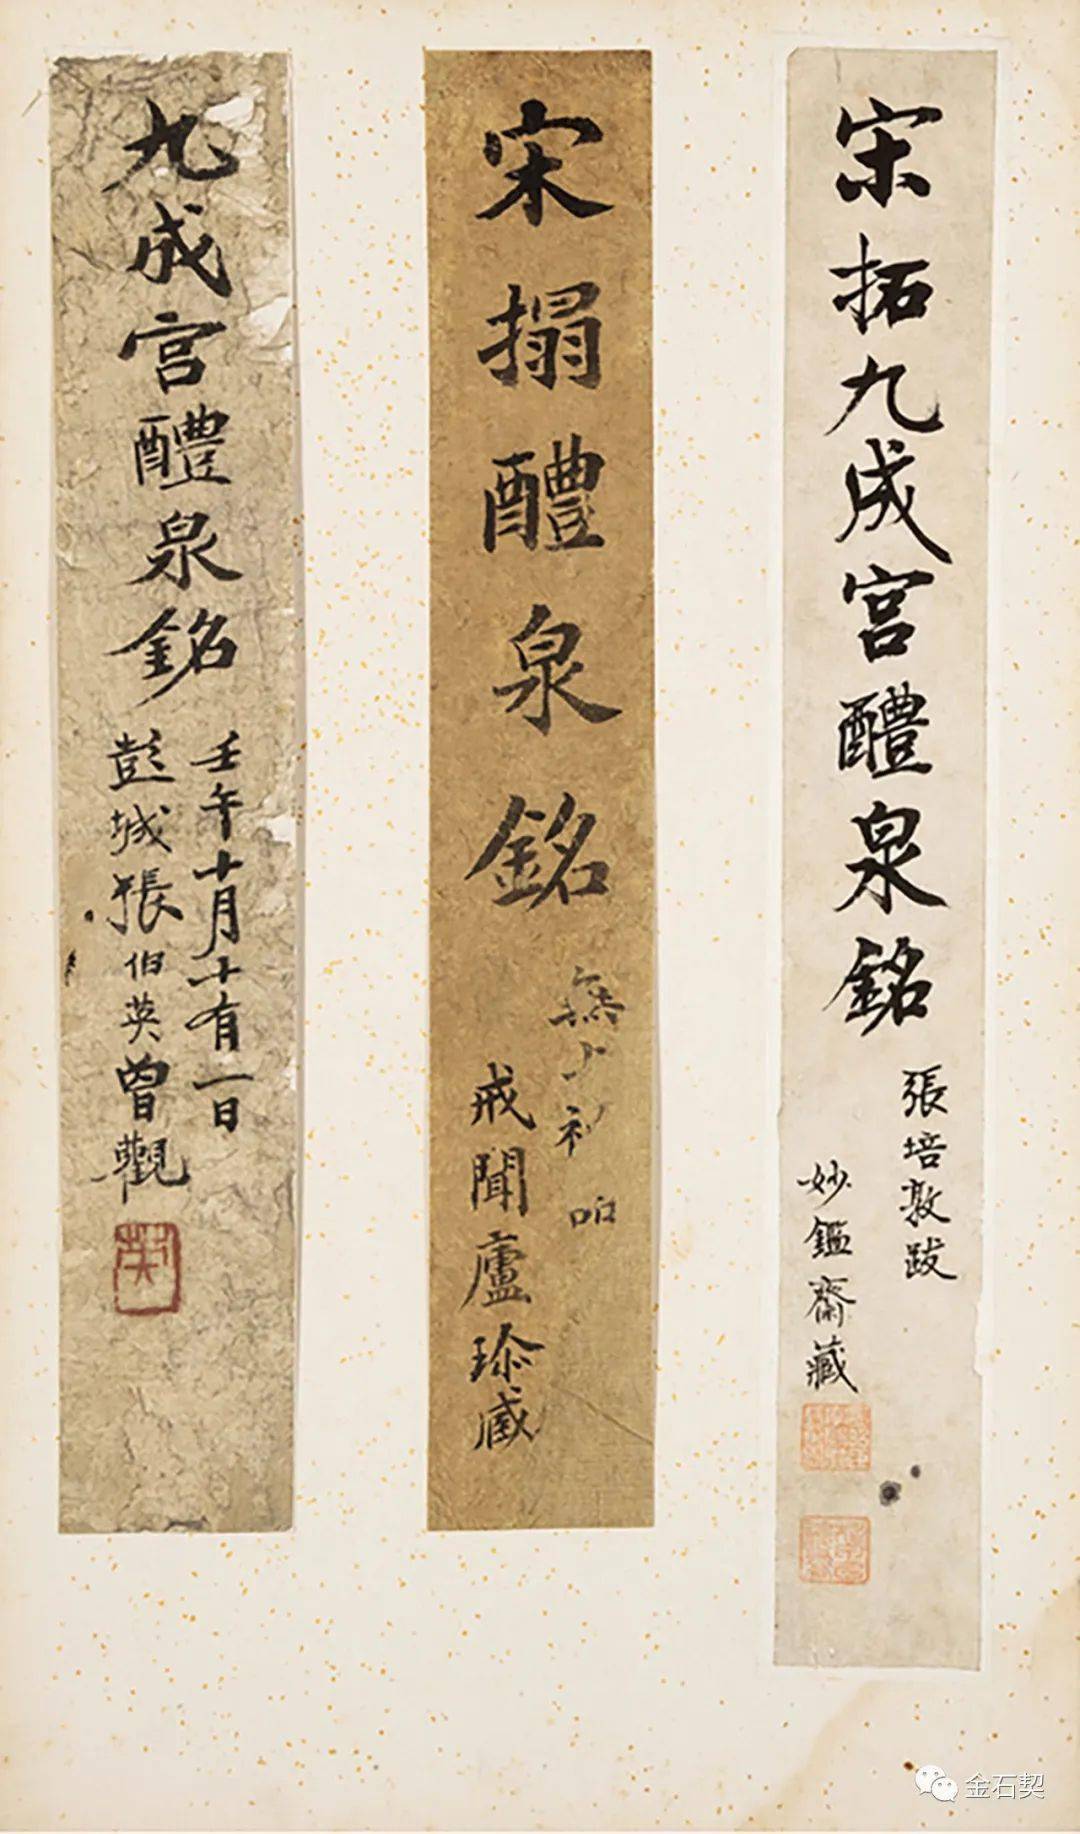 宋拓九成宮醴泉銘
張培敦跋
妙鑑齋藏
宋搨醴泉銘
戒聞廬珎藏
九成宮醴泉銘
壬午十月十有一日
彭城張伯英曾觀
英
金石契